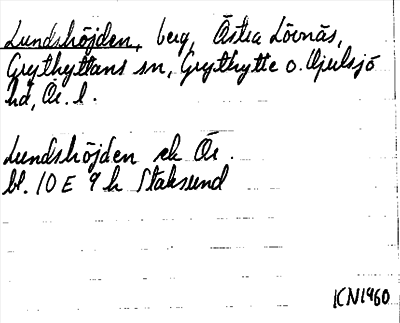 Lundshöjden, berg, Östra Lövnäs,
Grythyttans sn, Grythytte o. Hjulsjö
hd, Ör. l.
Lundshöjden ek Ör.
bl. 10 E 9 h Staksund
KN1960